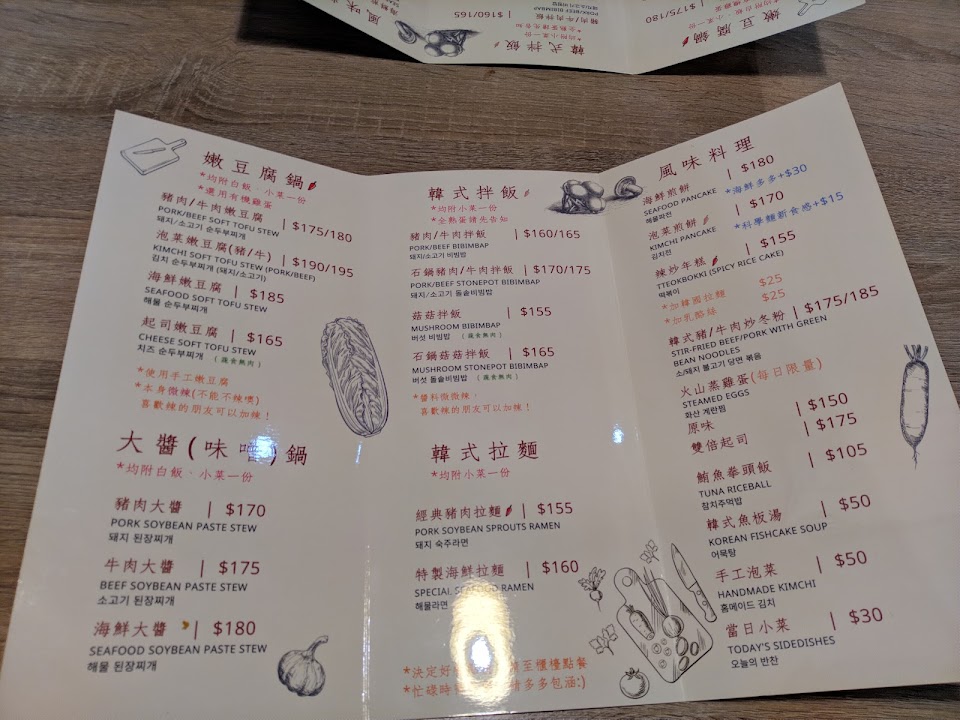 $160/165
豬肉/牛肉拌飯
PORK/BEEF BIBIMBAP
韓式拌飯
*均附小菜一份
*全熟蛋請先告知
$175/180
嫩豆腐鍋
嫩豆腐鍋
*均附白飯、小菜一份
*選用有機雞蛋
豬肉/牛肉嫩豆腐 | $175/180
PORK/BEEF SOFT TOFU STEW
돼지/소고기 순두부찌개
泡菜嫩豆腐(豬/牛) | $190/195
KIMCHI SOFT TOFU STEW (PORK/BEEF)
김치 순두부찌개 (돼지/소고기)
海鮮嫩豆腐 | $185
SEAFOOD SOFT TOFU STEW
해물 순두부찌개
起司嫩豆腐 | $165
CHEESE SOFT TOFU STEW
치즈 순두부찌개 (蔬食無肉)
*使用手工嫩豆腐
*本身微辣(不能不辣噢)
喜歡辣的朋友可以加辣！
大醬(味噌)鍋
*均附白飯、小菜一份
豬肉大醬 | $170
PORK SOYBEAN PASTE STEW
돼지 된장찌개
牛肉大醬 | $175
BEEF SOYBEAN PASTE STEW
소고기 된장찌개
海鮮大醬 | $180
SEAFOOD SOYBEAN PASTE STEW
해물 된장찌개
韓式拌飯
*均附小菜一份
*全熟蛋請先告知
豬肉/牛肉拌飯 | $160/165
PORK/BEEF BIBIMBAP
돼지/소고기 비빔밥
石鍋豬肉/牛肉拌飯 | $170/175
PORK/BEEF STONEPOT BIBIMBAP
돼지/소고기 돌솥비빔밥
菇菇拌飯 | $155
MUSHROOM BIBIMBAP
버섯 비빔밥 (蔬食無肉)
石鍋菇菇拌飯 | $165
MUSHROOM STONEPOT BIBIMBAP
버섯 돌솥비빔밥 (蔬食無肉)
*醬料微微辣，
喜歡辣的朋友可以加辣！
韓式拉麵
*均附小菜一份
經典豬肉拉麵 | $155
PORK SOYBEAN SPROUTS RAMEN
돼지 숙주라면
特製海鮮拉麵 | $160
SPECIAL SEAFOOD RAMEN
해물라면
*決定好 至櫃檯點餐
*忙碌時 請多多包涵:)
風味料理
海鮮煎餅 | $180
SEAFOOD PANCAKE *海鮮多多+$30
해물파전
泡菜煎餅 | $170
KIMCHI PANCAKE *科學麵新食感+$15
김치전
辣炒年糕 | $155
TTEOKBOKKI (SPICY RICE CAKE)
떡볶이
*加韓國拉麵 $25
*加乳酪絲 $25
韓式豬/牛肉炒冬粉 | $175/185
STIR-FRIED BEEF/PORK WITH GREEN
BEAN NOODLES
소/돼지 불고기 당면 볶음
火山蒸雞蛋(每日限量)
STEAMED EGGS
화산 계란찜
原味 | $150
雙倍起司 | $175
鮪魚拳頭飯 | $105
TUNA RICEBALL
참치주먹밥
韓式魚板湯 | $50
KOREAN FISHCAKE SOUP
어묵탕
手工泡菜 | $50
HANDMADE KIMCHI
홈메이드 김치
當日小菜 | $30
TODAY'S SIDEDISHES
오늘의 반찬